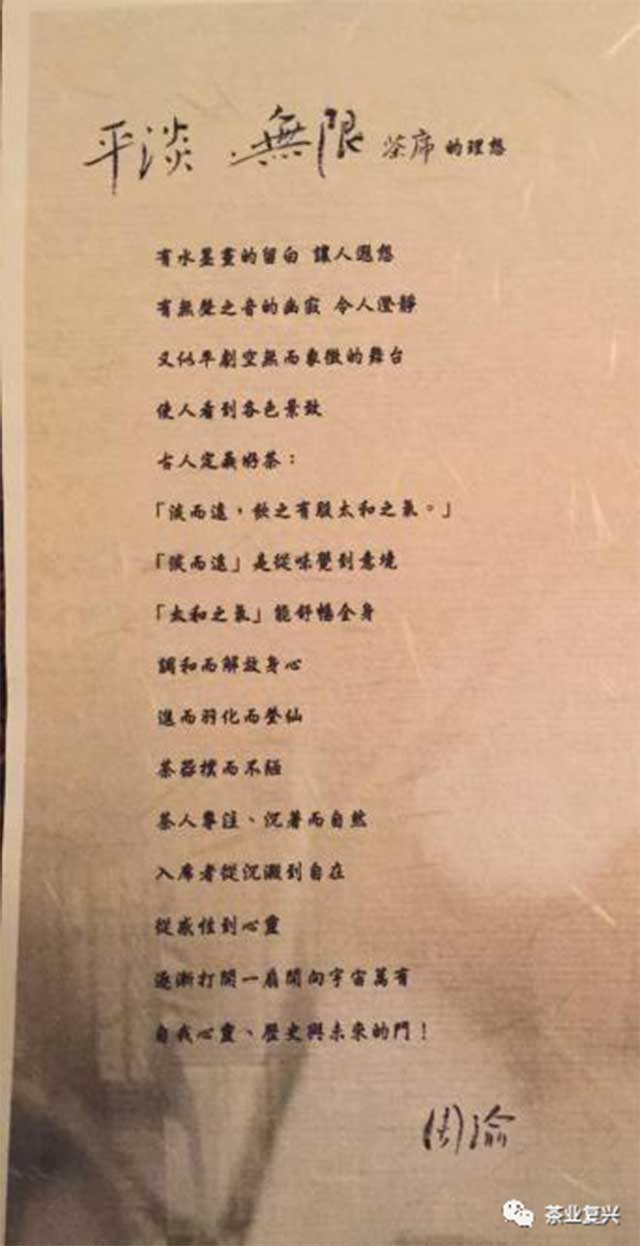 平淡 無限 茶席的理想
有水墨畫的留白 讓人遐想
有無聲之音的幽寂 令人澄靜
又似平劇空無而象徵的舞台
使人看到各色景致
古人定義好茶：
「淡而遠，飲之有股太和之氣。」
「淡而遠」是從味覺到意境
「太和之氣」能舒暢全身
調和而解放身心
進而羽化而登仙
茶器樸而不陋
茶人專注、沉著而自然
入席者從沉澱到自在
從感性到心靈
逐漸打開一扇開向宇宙萬有
自我心靈、歷史與未來的門！
周渝
茶业复兴